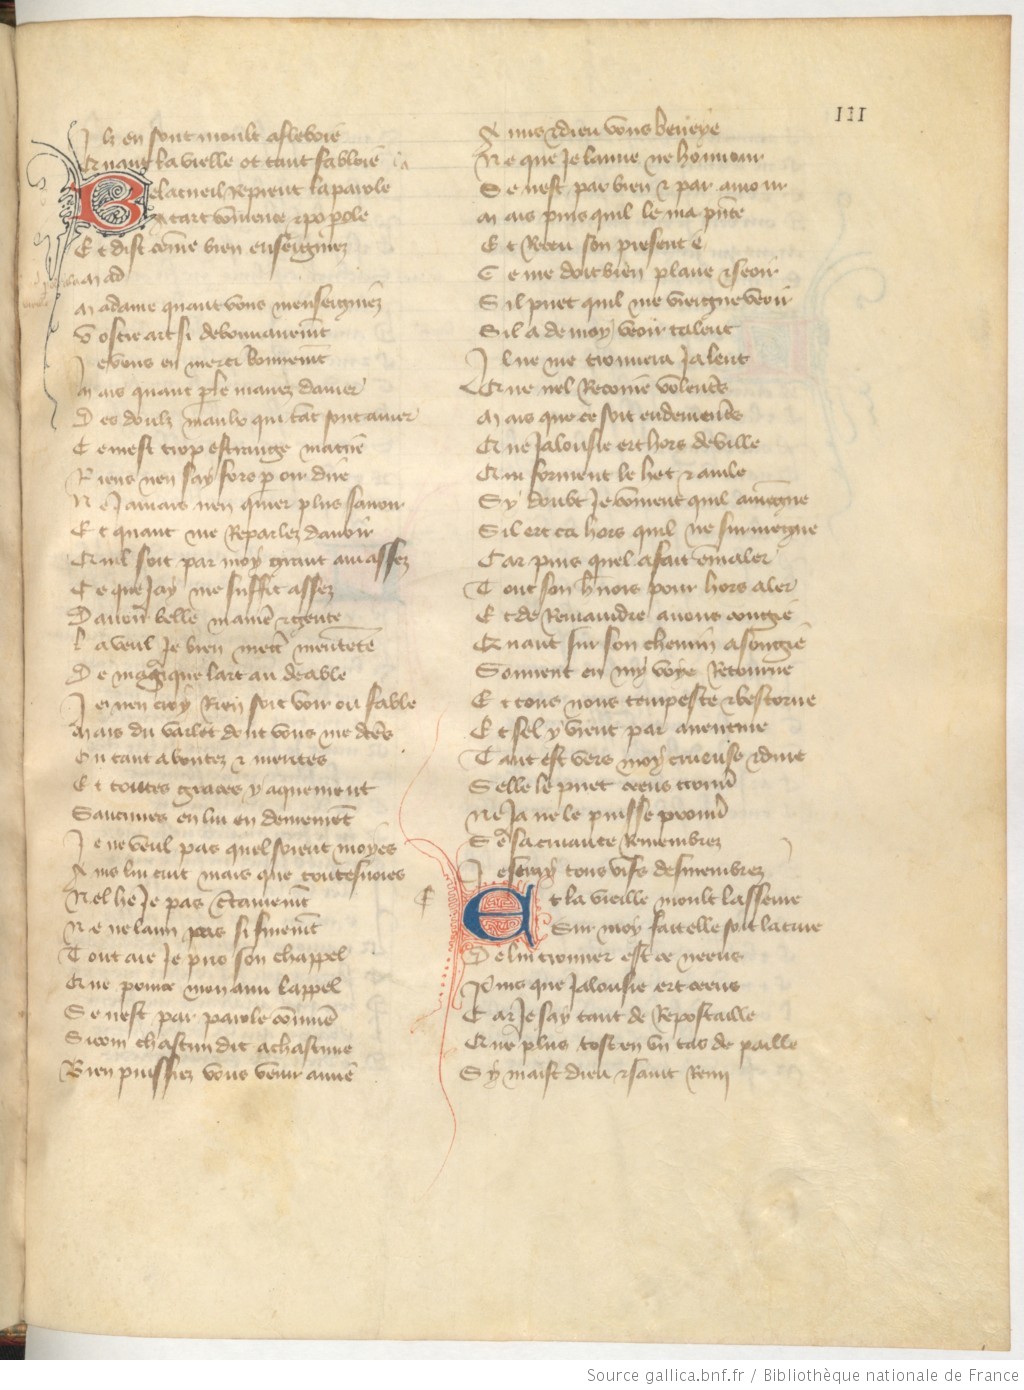 III
Ilz en sont moult aslevoié
Quant la vielle ot tant fabloié
Belacueil reprent la parole
Et dist cōme bien enseigniez
Mad
Madame quant vous menseigniez
Vostre art si debonnairemt̄
Je vous en merci bonnemt̄
Mais quant ꝑle mauez damer
Des doulz maulx qui tāt sont amer
Ce mest trop estrange matiē
Riens nen say fors p oir dire
Ne Jamais nen quier plus sauoir
Et quant me Reparlez dauoir
Quil soit par moy grant amassez
Ce que Jay me souffit assez
Dauoir belle maniē ⁊ gente
La veul Je bien mett̄ mentente
De magique lart au deable
Je nen croy Rien soit voir ou fable
Mais du varlet dont vous me dctēs
Ou tant a bontez ⁊ merites
Et toutes graces y aqueurent
Saucunes en lui en demeurēt
Je ne veul pas quel soient moyes
Ains lui quit mais que toutesuoies
Nel he Je pas c̄tainemt̄
Ne ne laim pas si finemt̄
Tout aie Je prins son chappel
Que pource mon ami lappel
Se nest par parole cōmune
Si com chascun dit a chascune
Bien puissiez vous venir amie
Amis ⁊ dieu vous beneye
Ne que Je laime ne honnour
Se nest par bien ⁊ par amour
Mais puis quil le ma pn̄te
Et Receu son present é
Ce me doit bien plaire ⁊ seoir
Sil puet quil me viengne veoir
Sil a de moy veoir talent
Il ne me trouuera Ja lent
Que nel Recoiue voulentēs
Mais que ce soit endementēs
Que Jalousie ert hors de ville
Qui forment le het ⁊ auile
Sy doubt Je cōment quil auiegne
Sil ert ca hors quil ne suruiegne
Car puis quel a fait ēmaler
Tout son hnois pour hors aler
Et de Remaindre auons congié
Quant sur son chemin a songié
Souuent en my voye Retourne
Et tous nous tempeste ⁊ bestorne
Et sel y vient par auenture
Tant est vers moy crueuse ⁊ dure
Selle le puet ceens trouuer
Ne Ja ne le puisse prouuer
Se sa cruaute Remembrez
Je seray tous vifs desmembrez
Et la vieille moult lasseure
Sur moy fait elle soit la cure
De lui trouuer est ce neens
Puis que Jalousie ert ceens
Car Je say tant de Repostaille
Que plus tost en vn tas de paille
Sy maist dieu ⁊ saint Remi
Source gallica.bnf.fr / Bibliothèque nationale de France